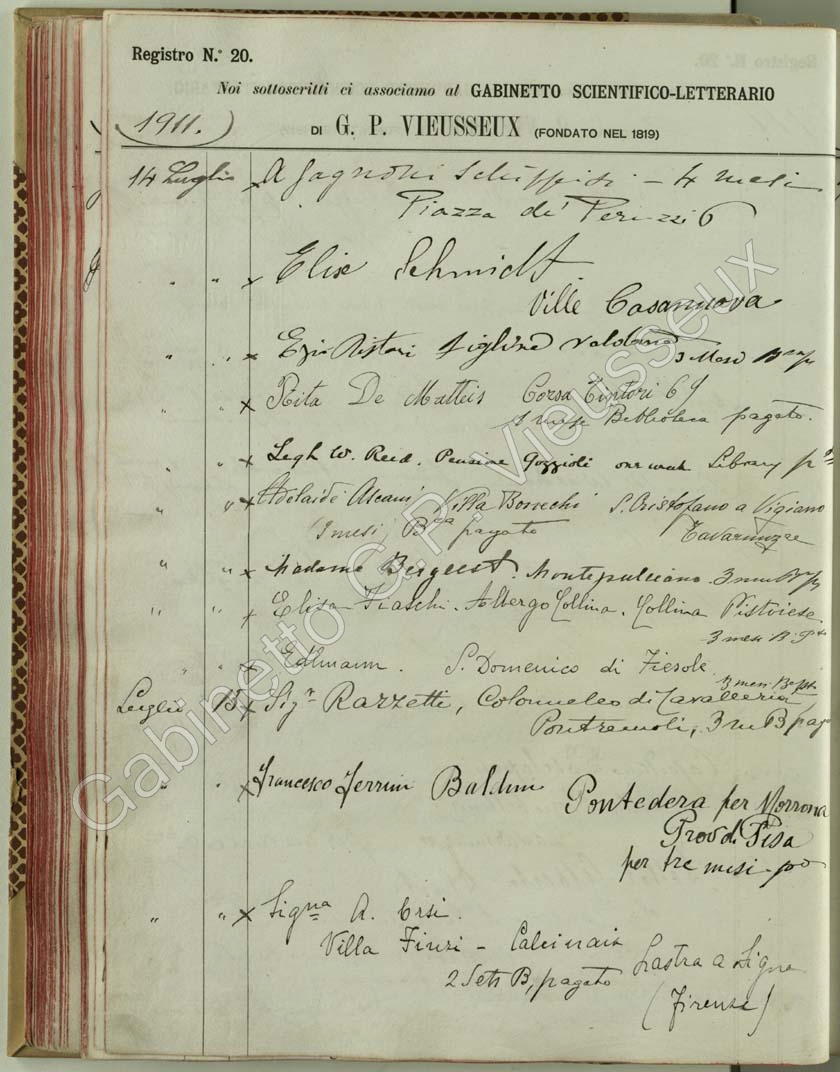 Registro N.° 20.
Noi sottoscritti ci associamo al GABINETTO SCIENTIFICO-LETTERARIO
1911.
DI G. P. VIEUSSEUX (FONDATO NEL 1819)
14 Luglio × A 4 mesi
Piazza de' Peruzzi 6
" " × Elise Schmidt
Ville Casanuova
" " × Ezio Ristori Figline Valdarno 3 Mesi
" " × Rita De Matteis Corso Tintori 69
1 mese Biblioteca pagato.
" " × Legh W. Reed. Pensione Gozzioli one week Library
" " × Adelaide Ascani Villa S. Cristofano a Vigiano
mesi Bca pagato Tavarnuzze
" " × Madame Bergeest. Montepulciano. 3
" " × Elisa Fiaschi. Albergo Collina. Collina Pistoiese.
3 mesi B.
" " × Edlmann. S. Domenico di Fiesole
3 mesi
Luglio 15 × Sigr Razzetti, Colonnello di Cavalleria
Pontremoli, 3 m B pag
" " × Francesco Ferrini Baldini
Pontedera per Morrona
Prov di Pisa
per tre mesi po
" " × Signa A. Orsi.
Villa Finzi - Calcinaia
Lastra a Signa
2 Sett B, pagato
(Firenze)
Gabinetto G.P. Vieusseux